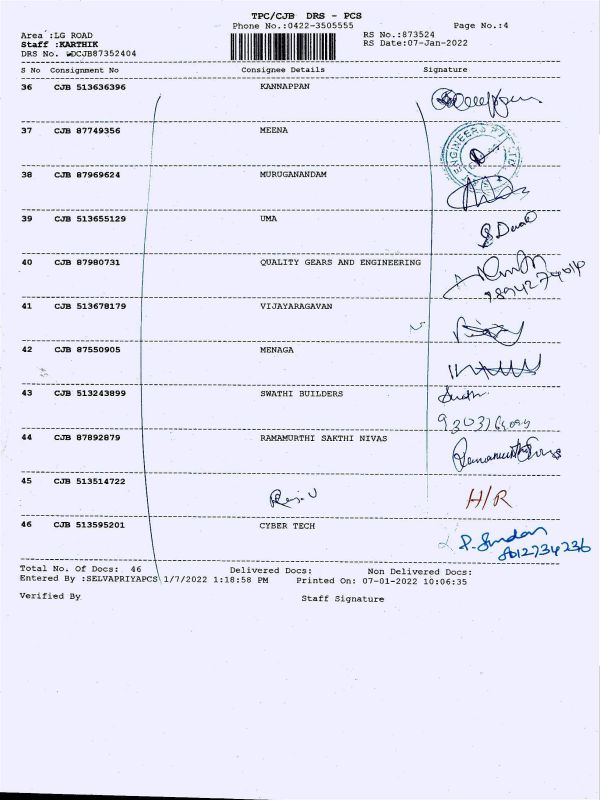 TPC/CJB DRS - PCS
Phone No.:0422-3505555 Page No.:4
Area :LG ROAD RS No.:873524
Staff :KARTHIK RS Date:07-Jan-2022
DRS No. DCJB87352404
S No Consignment No Consignee Details Signature
36 CJB 513636396 KANNAPPAN
37 CJB 87749356 MEENA
ENGINEERS PVT LTD
38 CJB 87969624 MURUGANANDAM
39 CJB 513655129 UMA
40 CJB 87980731 QUALITY GEARS AND ENGINEERING
41 CJB 513678179 VIJAYARAGAVAN
42 CJB 87550905 MENAGA
43 CJB 513243899 SWATHI BUILDERS
44 CJB 87892879 RAMAMURTHI SAKTHI NIVAS
45 CJB 513514722 H/R
46 CJB 513595201 CYBER TECH
8012734236
Total No. Of Docs: 46 Delivered Docs: Non Delivered Docs:
Entered By :SELVAPRIYAPCS 1/7/2022 1:18:58 PM Printed On: 07-01-2022 10:06:35
Verified By Staff Signature